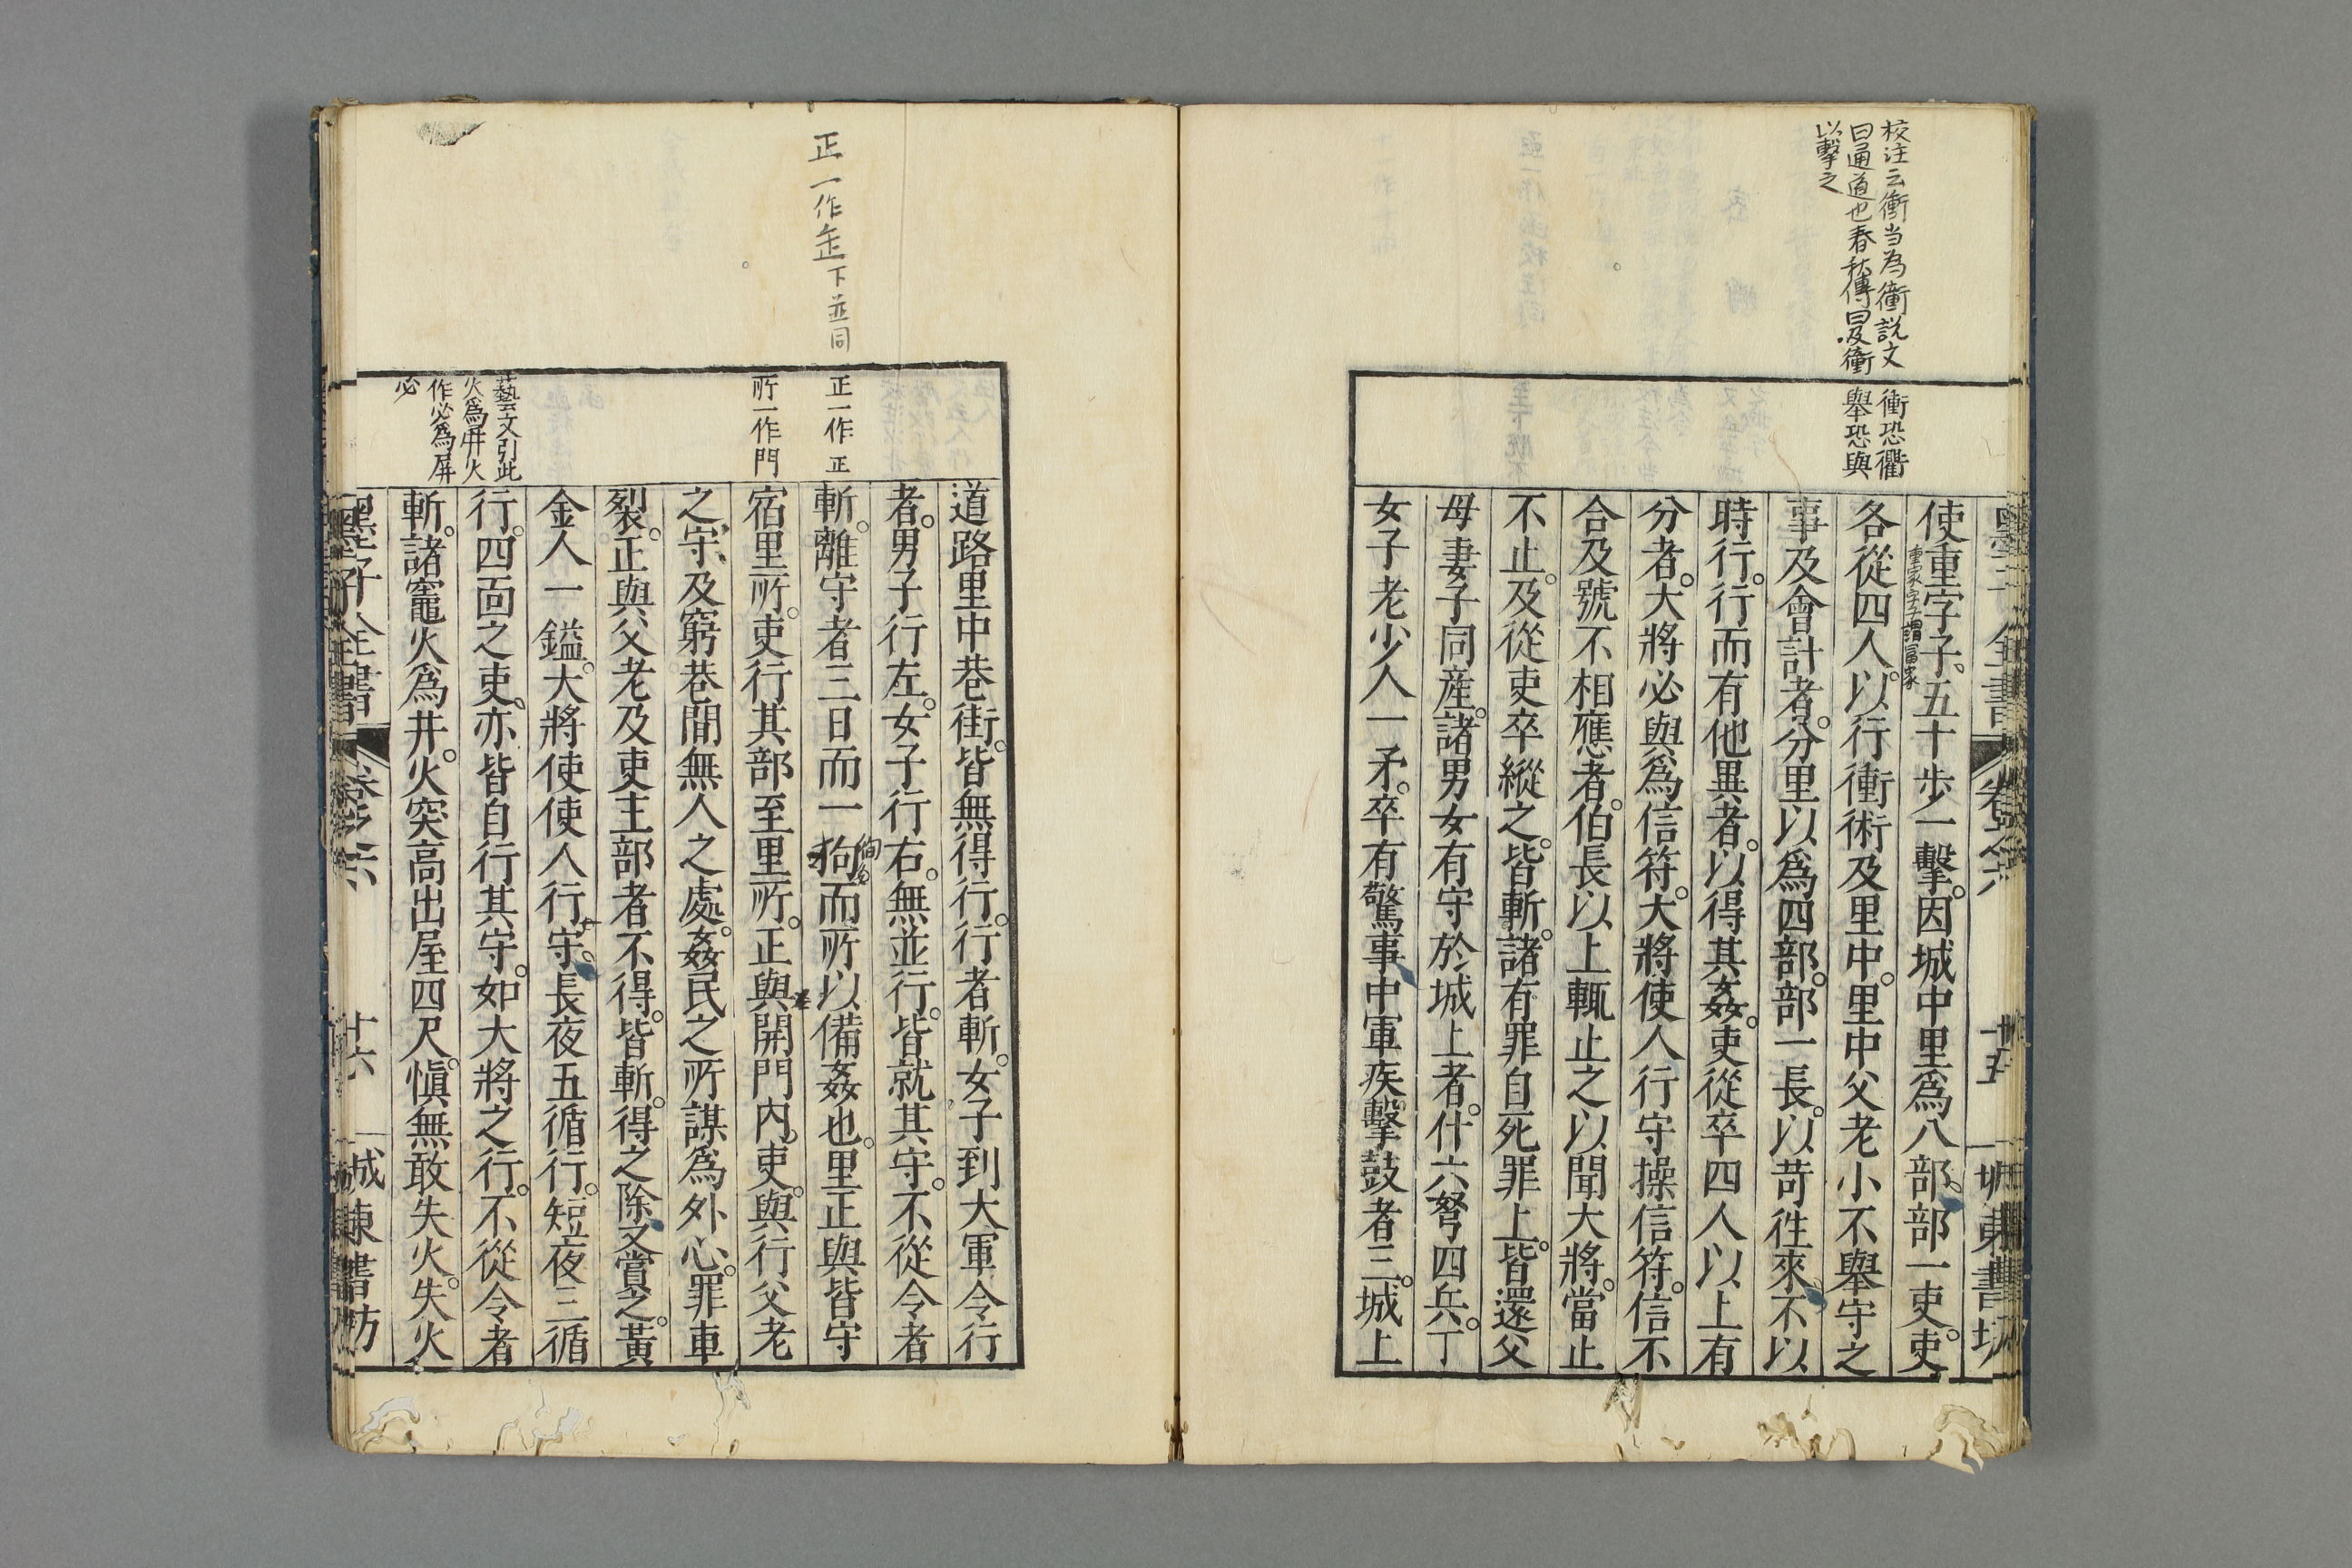 校注云衝当為衝説文
曰通道也春秋傳曰及衝
以擊之
衝恐衢
舉恐與
墨子全書
卷之六
十五
城東書坊
使重字子五十步一擊。因城中里爲八部。部一吏。吏
重家字子謂冨家
各從四人。以行衝術及里中。里中父老小不舉守之
事及會計者。分里以爲四部。部一長。以苛徃來不以
時行。行而有他異者。以得其姦。吏從卒四人以上有
分者。大將必與爲信符。大將使人行守操信符。信不
合及號不相應者。伯長以上輒止之以聞大將。當止
不止。及從吏卒縱之。皆斬。諸有罪自死罪上。皆還父
母妻子同産。諸男女有守於城上者。什六弩四兵。丁
女子老少人一矛。卒有驚事中軍疾擊鼓者三。城上
正一作𤴓下並同
正一作正
所一作門
藝文引此
火爲井火
作必爲屏
必
道路里中巷街。皆無得行。行者斬。女子到大軍令行
者。男子行左。女子行右。無並行。皆就其守。不從令者
斬。離守者三日而一狥而所以備姦也。里正與皆守
宿里所。吏行其部至里所。正與開門内。吏。與行父老
之守、及窮巷閒無人之處。姦民之所謀爲外心。罪車
裂。正與父老及吏主部者不得。皆斬。得之除又賞之。黃
金人一鎰。大將使使人行守。長夜五循行。短夜三循
行。四面之吏。亦皆自行其守。如大將之行。不從令者
斬。諸竈火爲井。火突高出屋四尺。愼無敢失火。失火
墨子全書
卷之六
十六
城東書坊